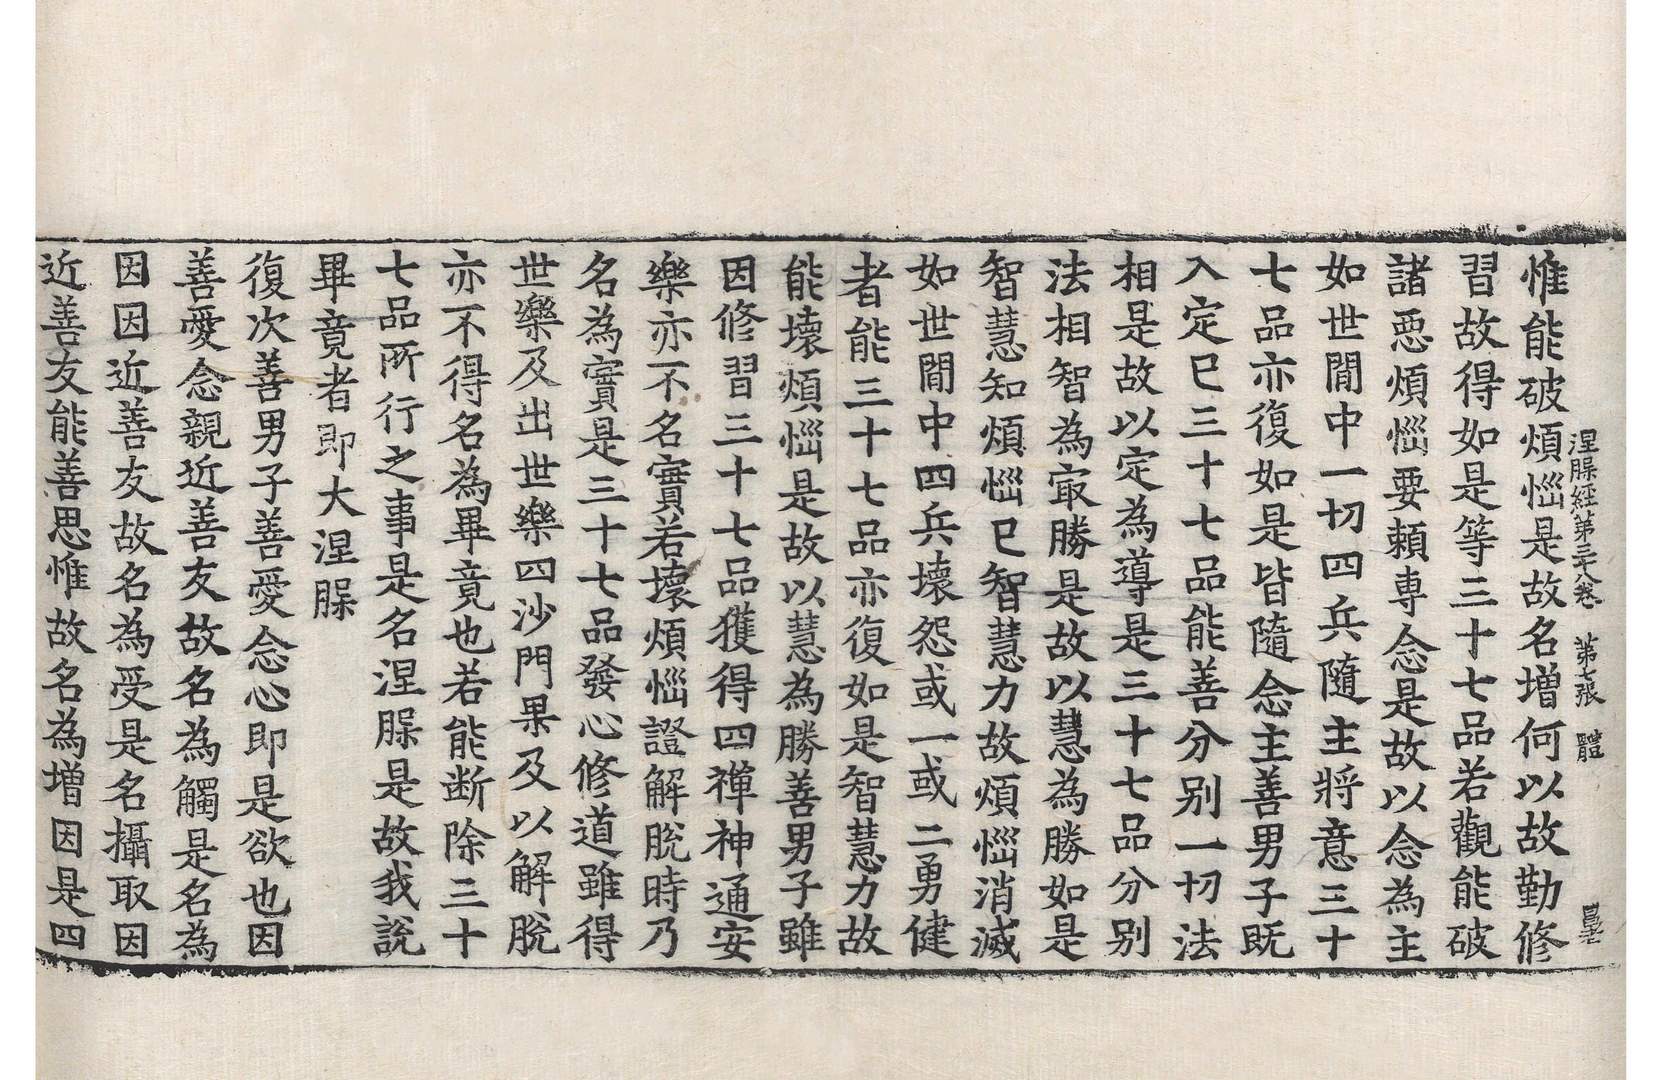 涅槃經第三十八卷 第七張 體
惟能破煩惱是故名增何以故勤修
習故得如是等三十七品若觀能破
諸惡煩惱要賴專念是故以念為主
如世間中一切四兵隨主將意三十
七品亦復如是皆隨念主善男子既
入定已三十七品能善分别一切法
相是故以定為導是三十七品分别
法相智為㝡勝是故以慧為勝如是
智慧知煩惱已智慧力故煩惱消滅
如世間中四兵壞怨或一或二勇健
者能三十七品亦復如是智慧力故
能壞煩惱是故以慧為勝善男子雖
因修習三十七品獲得四禪神通安
樂亦不名實若壞煩惱證解脫時乃
名為實是三十七品發心修道雖得
世樂及出世樂四沙門果及以解脫
亦不得名為畢竟也若能断除三十
七品所行之事是名涅槃是故我說
畢竟者即大涅槃
復次善男子善愛念心即是欲也因
善愛念親近善友故名為觸是名為
因因近善友故名為受是名攝取因
近善友能善思惟故名為增因是四